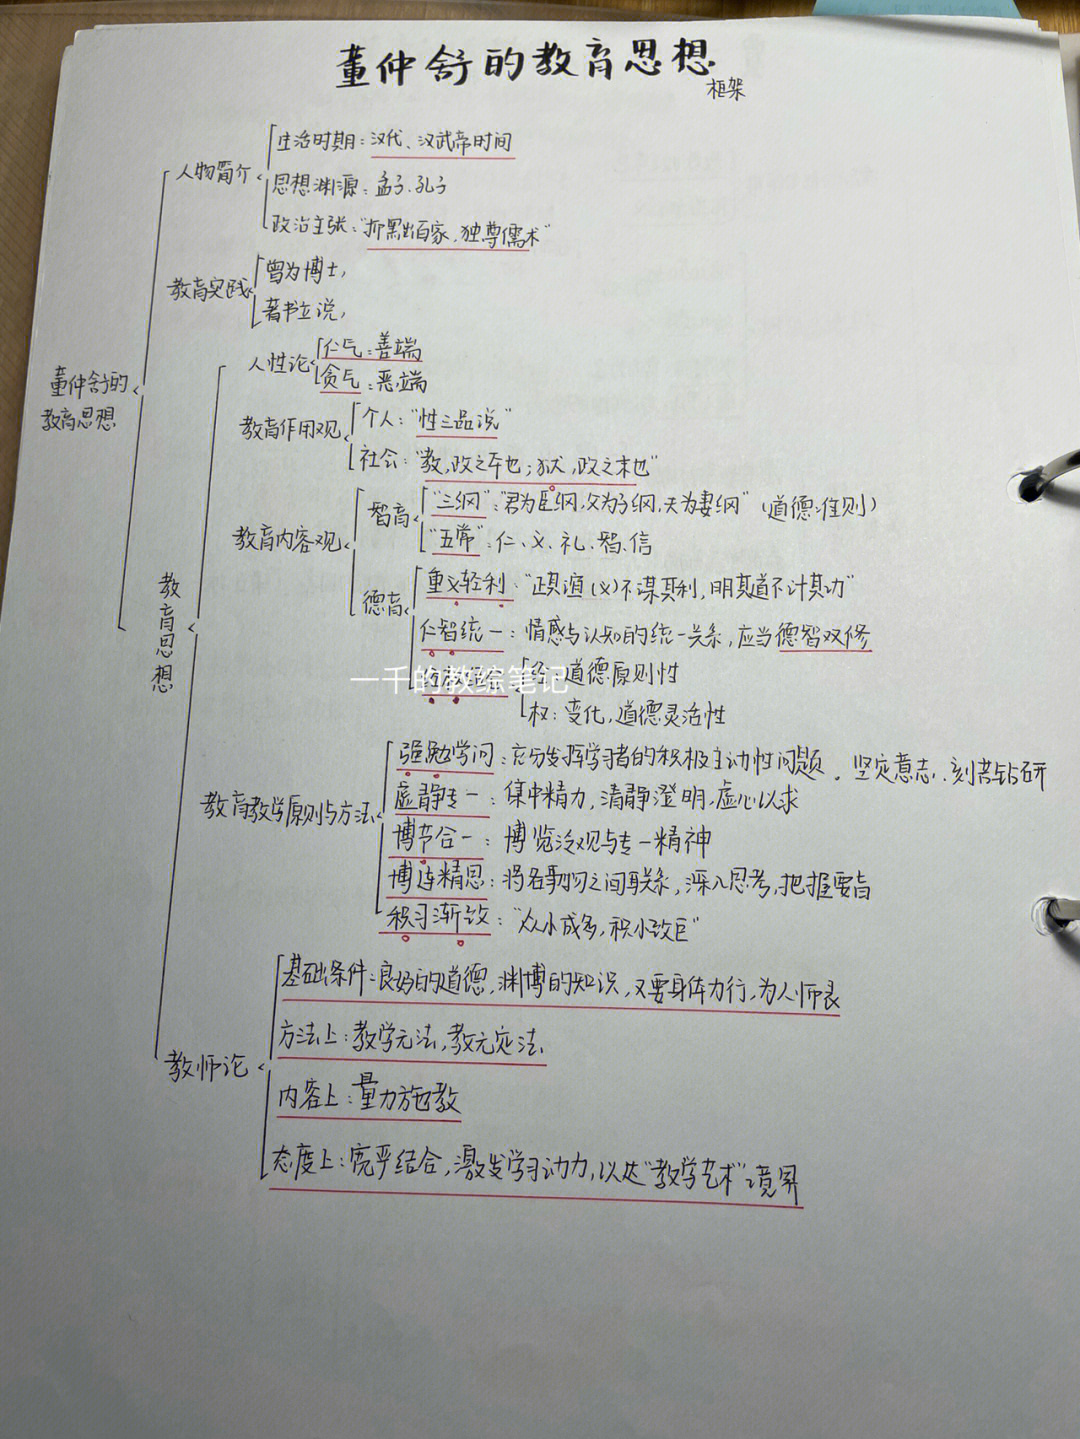 董仲舒的教育思想
框架
生活时期：汉代、汉武帝时间
人物简介
思想渊源：孟子、孔子
政治主张：“抑黜百家，独尊儒术”
曾为博士，
教育实践
著书立说，
仁气：善端
人性论
贪气：恶端
董仲舒的
教育思想
个人：“性三品说”
教育作用观
社会：“教，政之本也；狱，政之末也”
“三纲”：“君为臣纲，父为子纲，夫为妻纲”（道德准则）
智育
“五常”：仁、义、礼、智、信
教育内容观
重义轻利：“正其谊（义）不谋其利，明其道不计其功”
德育
仁智统一：情感与认知的统一关系，应当德智双修
教育思想
一千的教综笔记
经：道德原则性
权：变化，道德灵活性
强勉学问：充分发挥学习者的积极主动性问题，坚定意志、刻苦钻研
虚静专一：集中精力，清静澄明，虚心以求
教育教学原则与方法
博节合一：博览泛观与专一精神
博连精思：将各事物之间联系，深入思考，把握要旨
积习渐致：“众小成多，积小致巨”
基础条件：良好的道德，渊博的知识，又要身体力行，为人师表
方法上：教学无法，教无定法
教师论
内容上：量力施教
态度上：宽严结合，激发学习动力，以达“教学艺术”境界